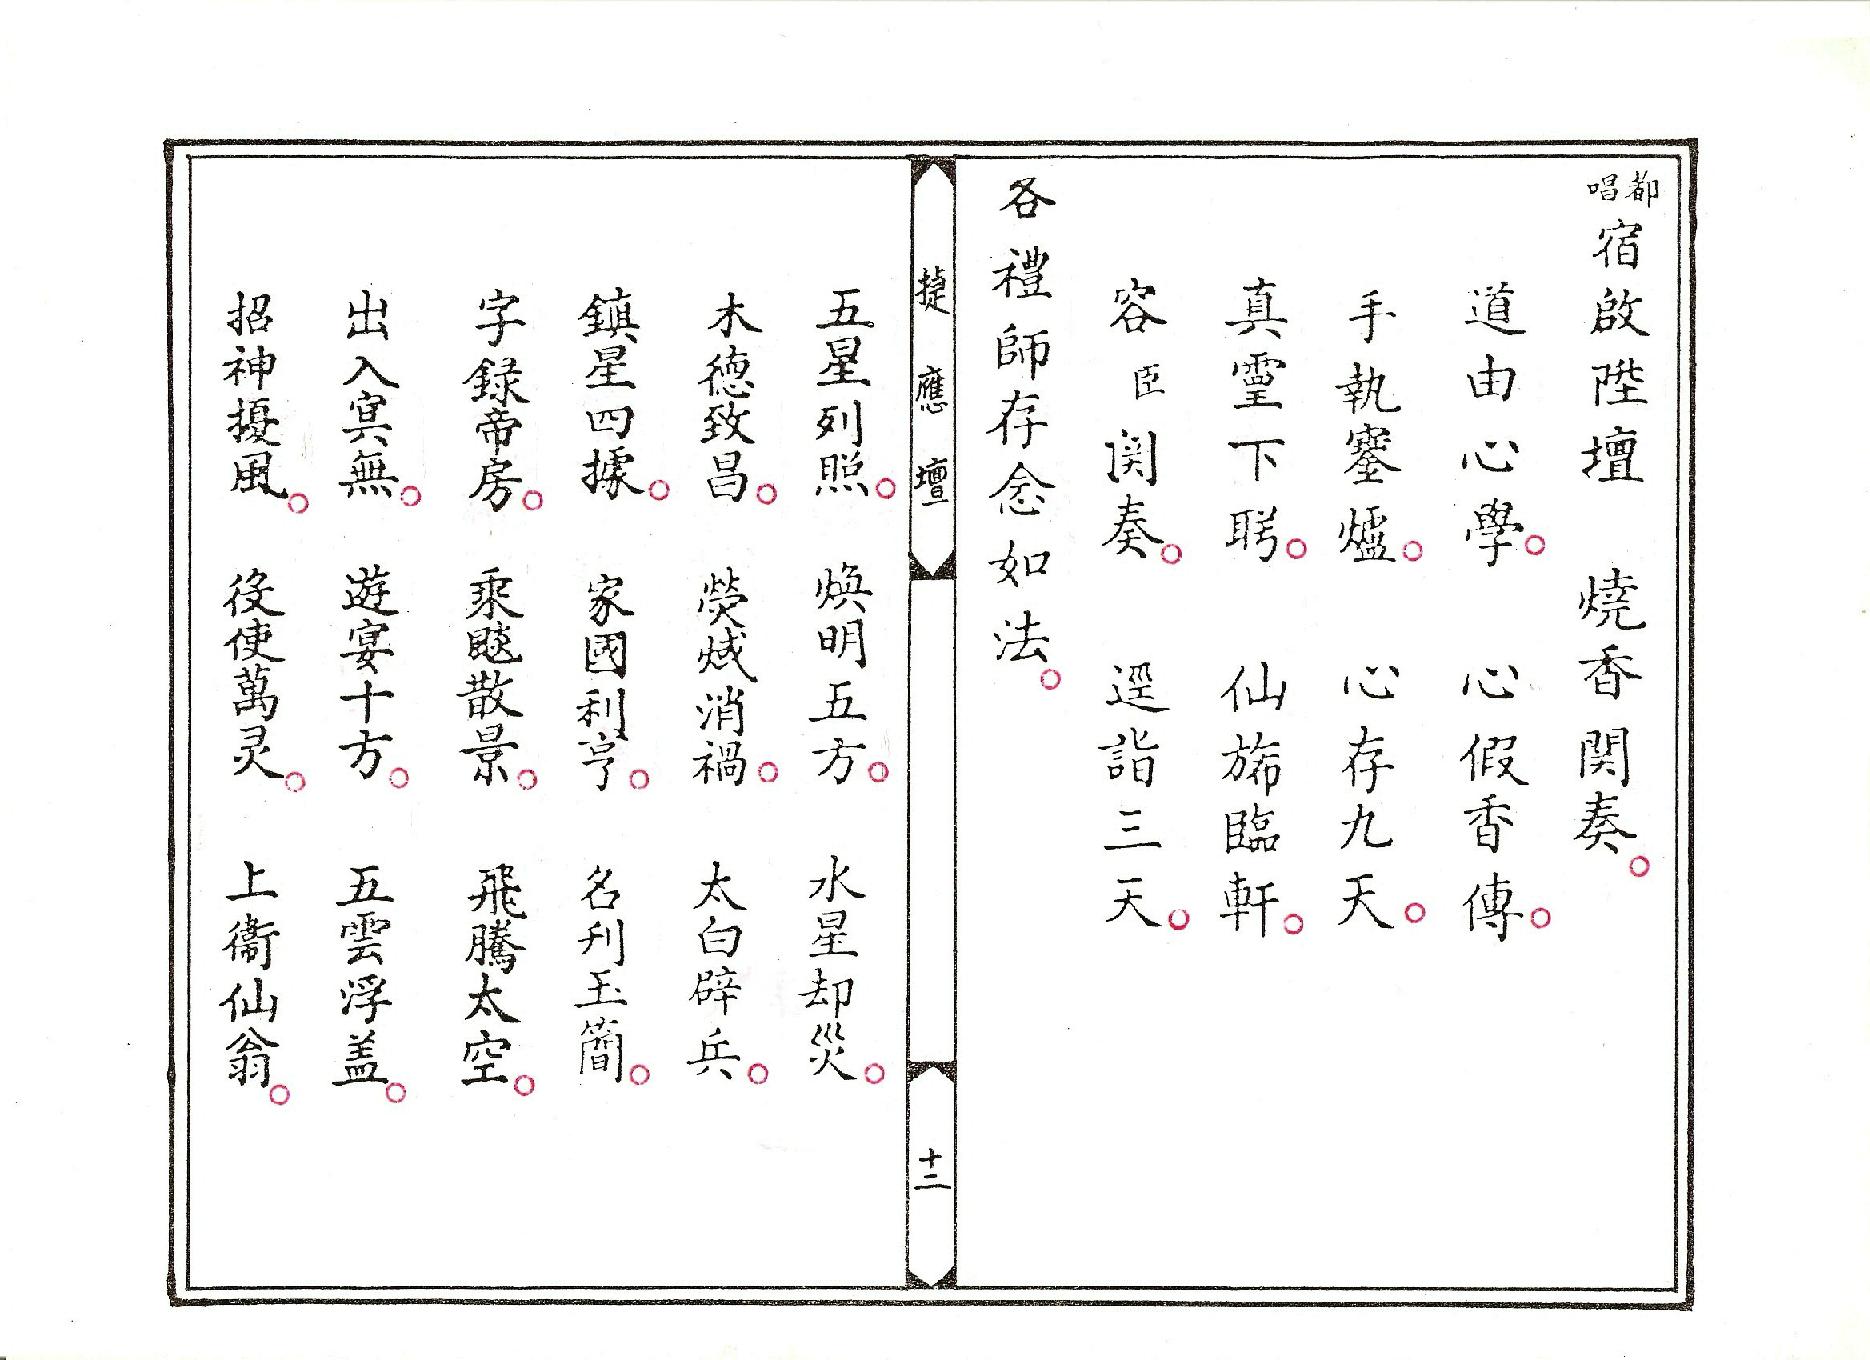 都唱
宿啟陛壇　燒香関奏。
道由心學。　心假香傳。
手執寶爐。　心存九天。
真霊下盼。　仙旆臨軒。
容臣関奏。　逕詣三天。
各禮師存念如法。
捷應壇
十二
五星列照。　煥明五方。　水星却災。
木德致昌。　熒惑消禍。　太白辟兵。
鎮星四據。　家國利亨。　名刋玉簡。
字錄帝房。　乘飈散景。　飛騰太空。
出入㝠無。　遊宴十方。　五雲浮盖。
招神擾風。　役使萬灵。　上衞仙翁。